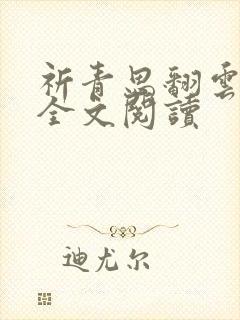 祈青思翻雲
全文閱讀
迪尤尔